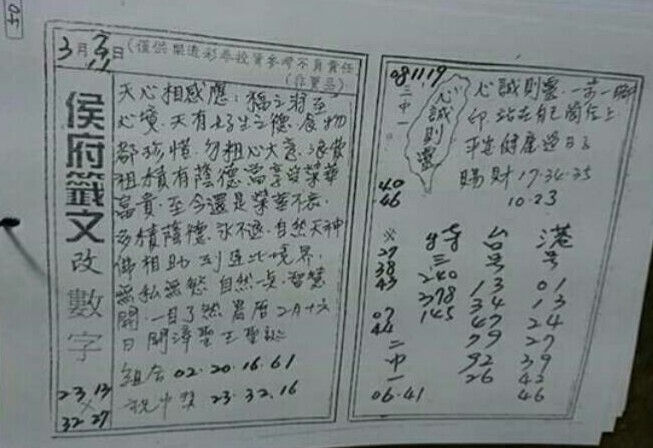 50
3月
日(僅供樂透彩券投資參考不負責任
(非賣品)
侯府籤文
改數字
23.13
×
32.27
天心相感應:福立將至
心境.天有好生之德.食物
都珍惜.勿粗心大意.浪費
祖積有蔭德當享受榮華
富貴.至今還是榮華不
多積蔭德.永不退.自然天神
佛相助 到達此境界.
無私無慾 自然 智慧
開.一目了然 農曆二月十六
日 開漳聖王聖誕
組合 02.20.16.61
祝中獎 23.32.16
081119
二中一
心誠則靈
40
46
心誠則靈.一步一腳
印 站在自己崗位上
平安健康過日子
賜財 17.34.35
10.23
※
27
38
43
07
44
二
中
一
06.41
特
三
240
278
145
台
号
13
34
47
79
92
26
港
号
01
13
24
27
39
42
46